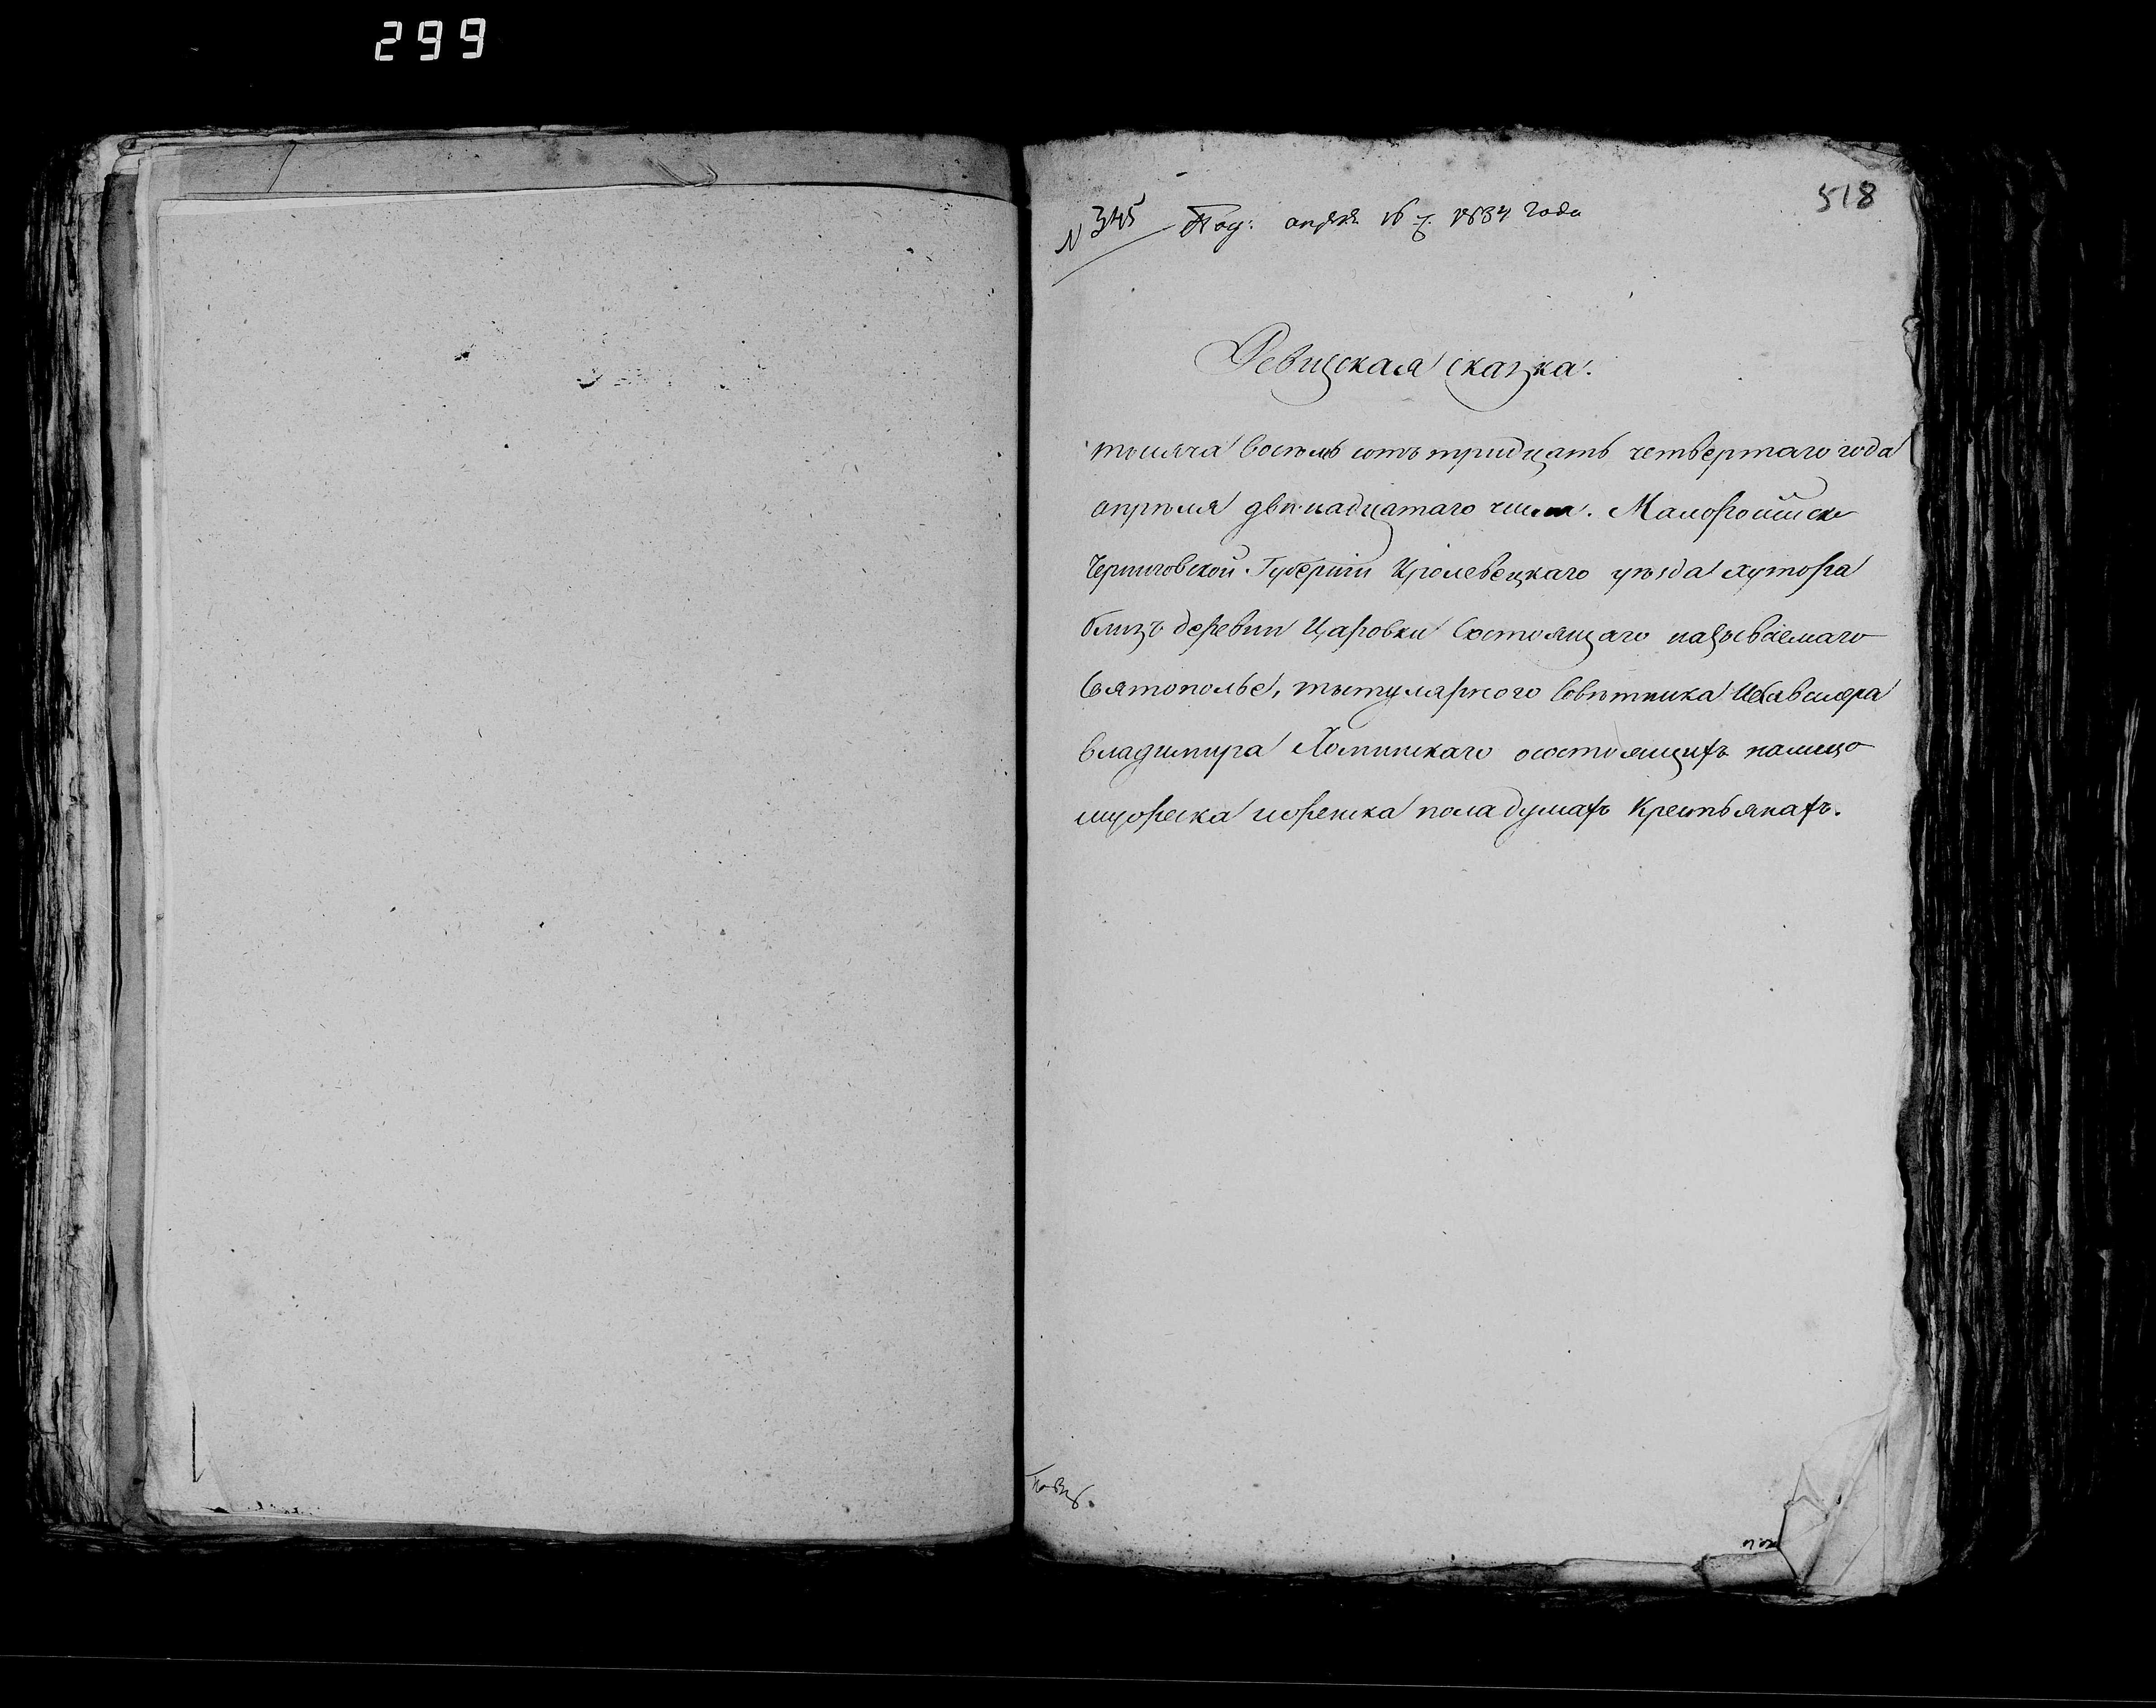 299
518
N 345 Под: апреля 16 ч. 1834 года
Ревизская сказка.
тысяча восемь сотъ тридцать четвертаго года
апреля двенадцатаго числа. Малороссийской
Черниговской Губернии Кролевецкаго уезда хутора
близъ деревни Царовки Состоящаго называемаго
Святополье, тытулярного Советника И Кавалера
владимира Хоминскаго осостоящихъ налицо
мужеска иженска пола душахъ Крестьянахъ.